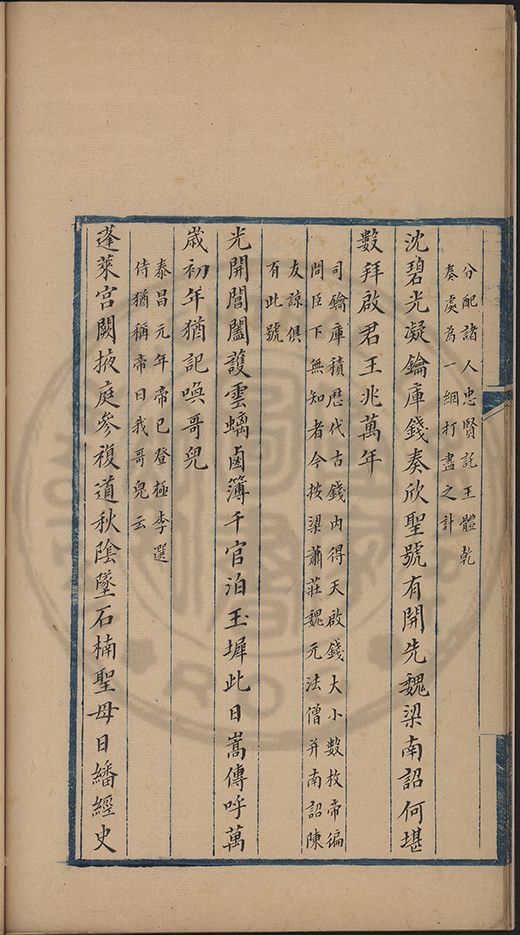 分配諸人忠賢託王體乾
奏處為一網打盡之計
沈碧光凝鑰庫錢奏欣聖號有開先魏梁南詔何堪
數拜啟君王兆萬年
司鑰庫積歷代古錢內得天啟錢大小數枚帝徧
問臣下無知者今按梁蕭莊魏元法僧并南詔陳
友諒俱
有此號
光開閶闔護雲螭鹵簿千官泊玉墀此日嵩傳呼萬
歲初年猶記喚哥兒
泰昌元年帝已登極李選
侍猶稱帝曰我哥兒云
蓬萊宮闕掖庭參複道秋陰墜石楠聖母日繙經史